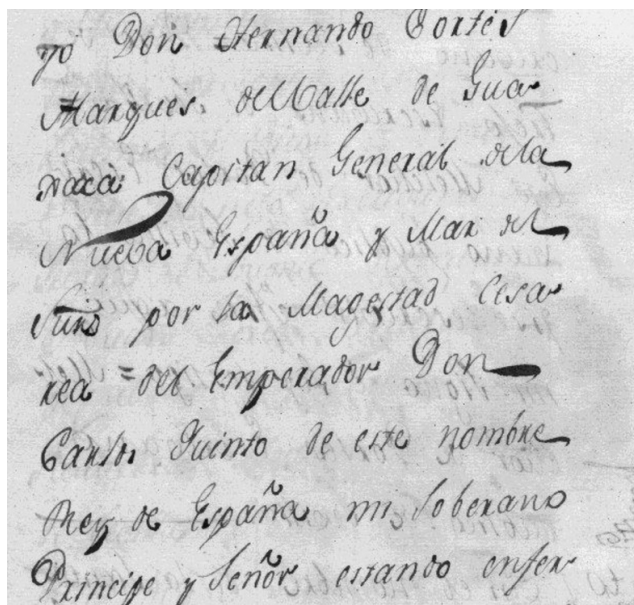 yo Don Hernando Cortés
Marques delValle de Gua
xaca Capitan General dela
Nueba España y Mar del
Sur por la Magestad Cesa
rea del Emperador Don
Carlos Quinto de este nombre
Rey de España mi Soberano
Principe y Señor estando enfer